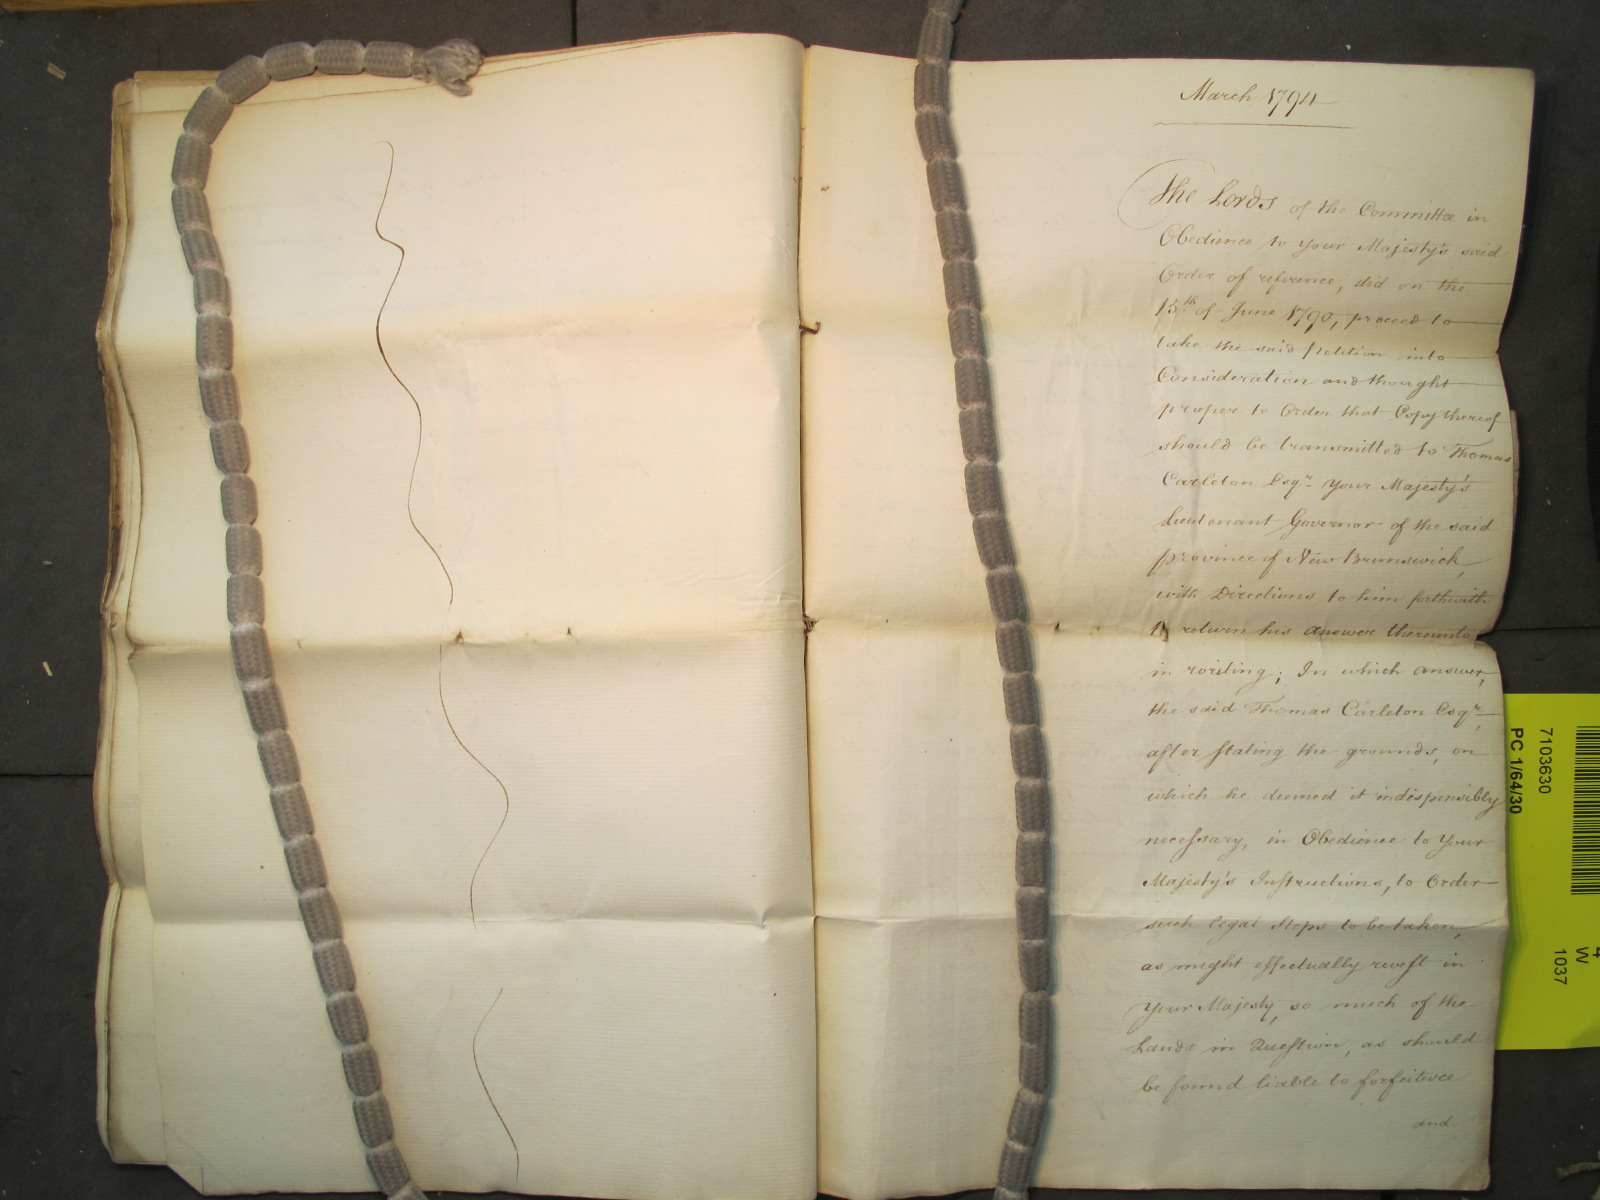 March 1794
The Lords of the Committee in
Obedience to your Majesty's said
Order of reference, did on the
15th of June 1790, proceed to
take the said Petition into
Consideration and thought
proper to Order that Copy thereof
should be transmitted to Thomas
Carleton Esqr. Your Majesty's
Lieutenant Governor of the said
province of New Brunswick,
with Directions to him forthwith
to return his answer thereunto
in writing; In which answer,
the said Thomas Carleton Esqr.,
after stating the grounds, on
which he deemed it indispensibly
necessary, in Obedience to Your
Majesty's Instructions, to Order
such legal Steps to be taken,
as might effectually revest in
Your Majesty, so much of the
Lands in Question, as should
be found liable to forfeiture
and
7103630
PC 1/64/30
4
W
1037